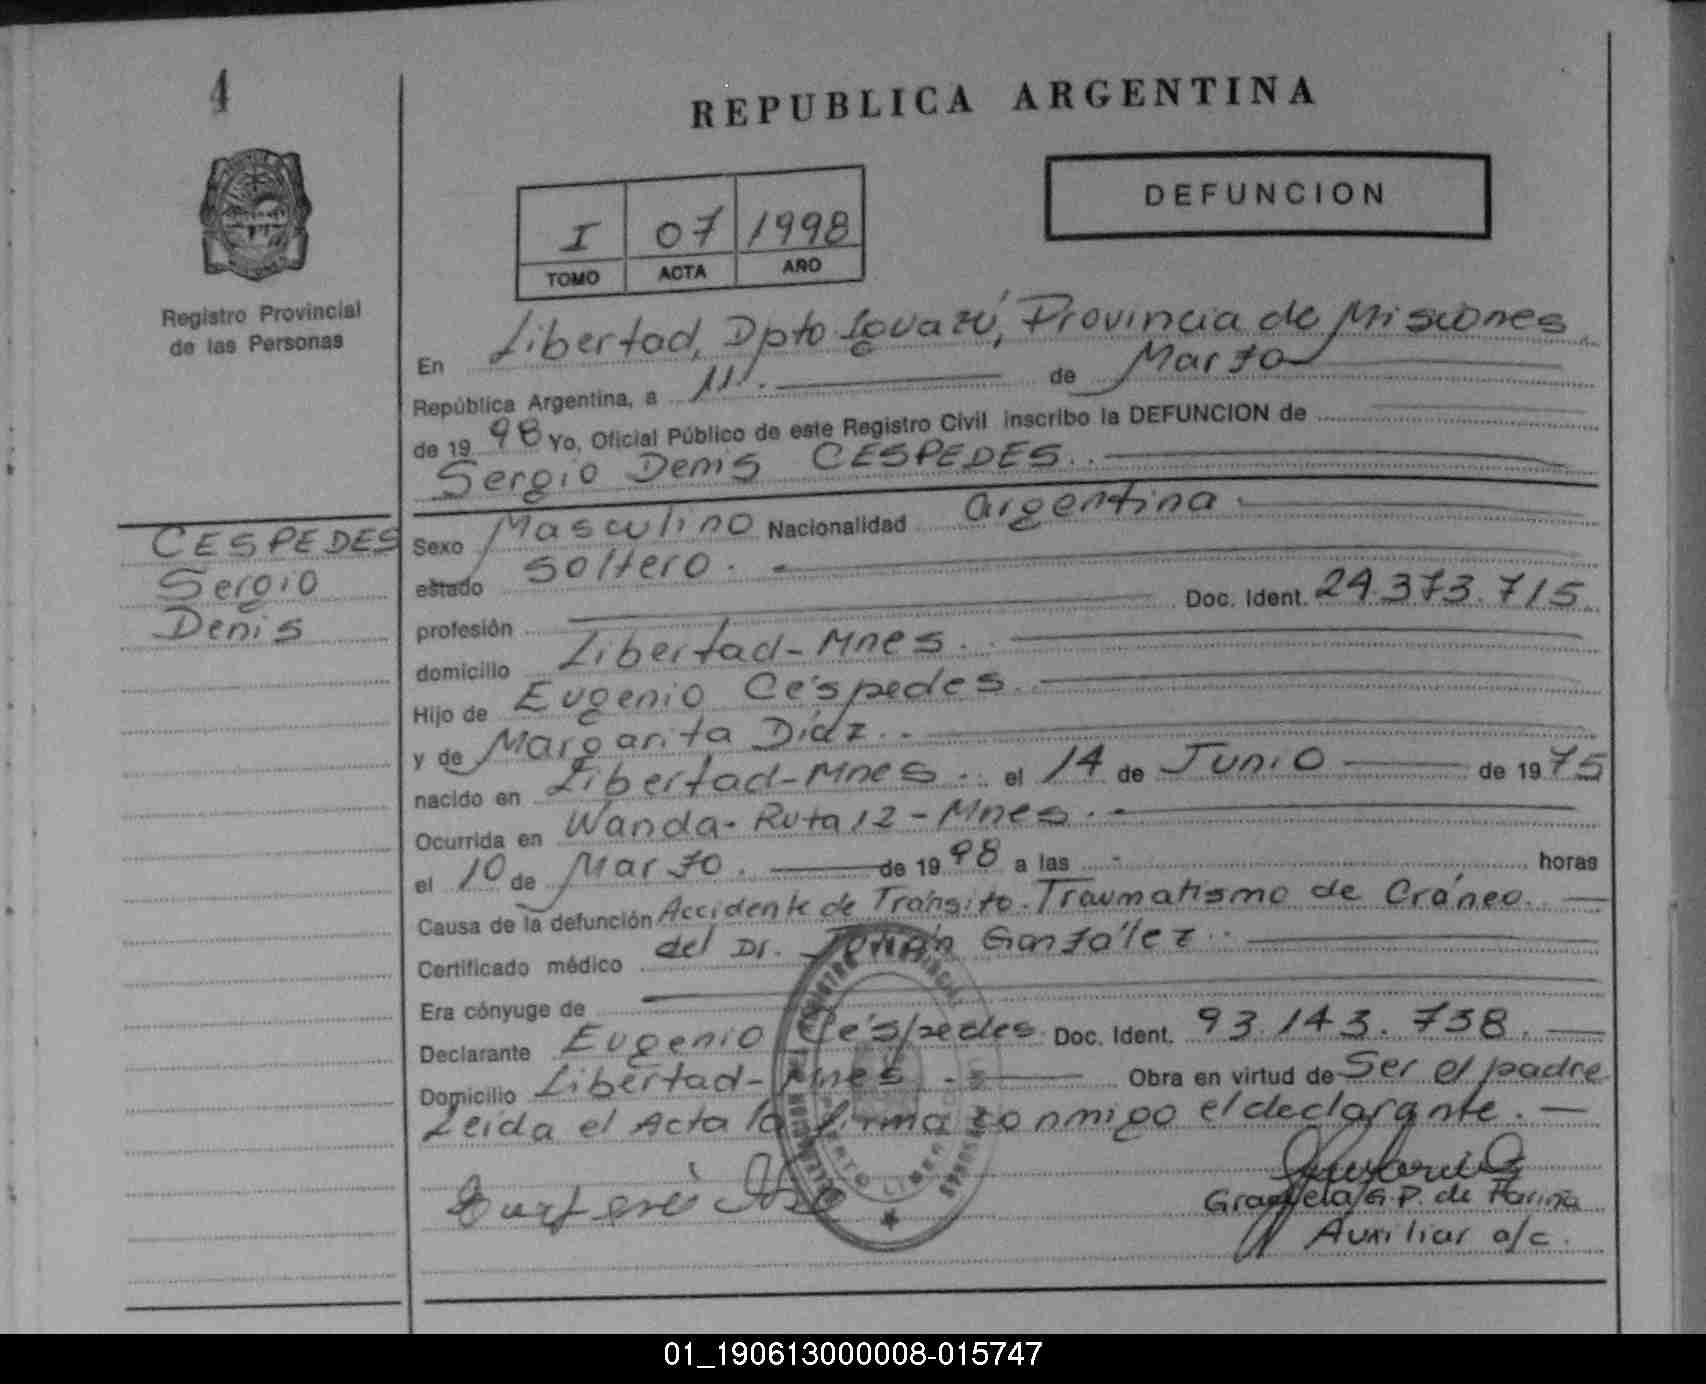 4
REPUBLICA ARGENTINA
DEFUNCION
I 07 1998
TOMO ACTA AÑO
Registro Provincial
de las Personas
En Libertad, Dpto Iguazú, Provincia de Misiones
República Argentina, a 11 de Marzo
de 1998 Yo, Oficial Público de este Registro Civil inscribo la DEFUNCION de
Sergio Denis CESPEDES
CESPEDES
Sergio
Denis
Sexo Masculino Nacionalidad argentina
estado Soltero
profesión Doc. Ident. 24.373.715
domicilio Libertad-Mnes
Hijo de Eugenio Céspedes
y de Margarita Díaz
nacido en Libertad-Mnes el 14 de Junio de 1975
Ocurrida en Wanda-Ruta 12-Mnes
el 10 de Marzo de 1998 a las - horas
Causa de la defunción Accidente de Tránsito-Traumatismo de Cráneo
Certificado médico del Dr. González
Era cónyuge de
Declarante Eugenio Céspedes Doc. Ident. 93.143.738
Domicilio Libertad-Mnes - Obra en virtud de Ser el padre
Leida el Acta la firma conmigo el declarante.
Graciela G.P. de Farina
Auxiliar a/c.
01_190613000008-015747